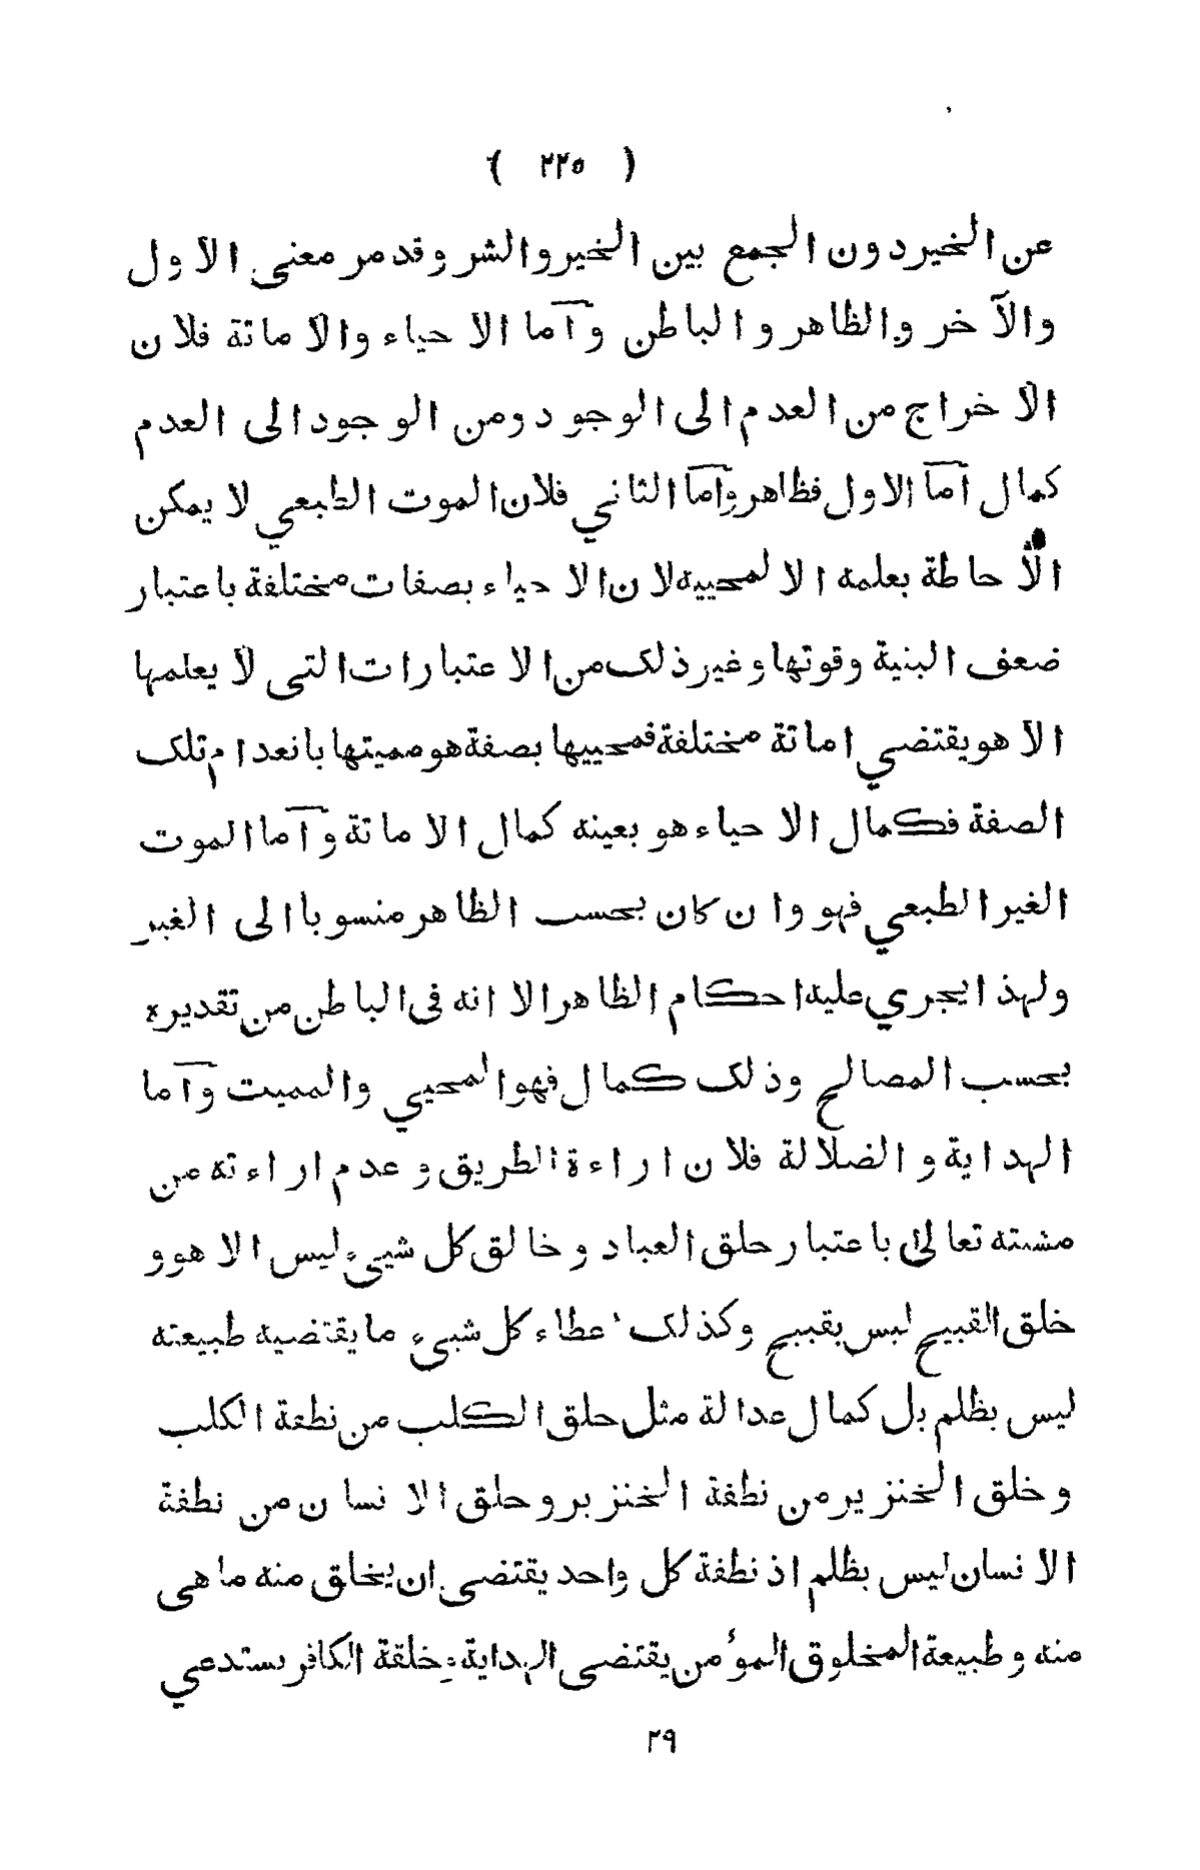 ( ٢٢٥ )
عن الخير دون الجمع بين الخير والشر وقد مر معنى الاول
والآخر والظاهر والباطن وآما الاحياء والاماتة فلان
الاخراج من العدم الى الوجود ومن الوجود الى العدم
كمال آما الاول فظاهر وآما الثاني فلان الموت الطبعي لا يمكن
الاحاطة بعلمه الا لمحييه لان الاحياء بصفات مختلفة باعتبار
ضعف البنية وقوتها وغير ذلك من الاعتبارات التى لا يعلمها
الا هو يقتضي اماتة مختلفة فمحييها بصفة هو مميتها بانعدام تلك
الصفة فكمال الاحياء هو بعينه كمال الاماتة وآما الموت
الغير الطبعي فهو وان كان بحسب الظاهر منسوبا الى الغير
ولهذا يجري عليه احكام الظاهر الا انه فى الباطن من تقديره
بحسب المصالح وذلك كمال فهو المحيي والمميت وآما
الهداية والضلالة فلان اراءة الطريق وعدم اراءته من
مشته تعالى باعتبار حلق العباد وخالق كل شيىء ليس الا هو و
خلق القبيح ليس بقبيح وكذلك اعطاء كل شيىء ما يقتضيه طبيعته
ليس بظلم بل كمال عدالة مثل حلق الكلب من نطفة الكلب
وخلق الخنزير من نطفة الخنزير وحلق الانسان من نطفة
الانسان ليس بظلم اذ نطفة كل واحد يقتضى ان يخلق منه ما هى
منه وطبيعة المخلوق المؤمن يقتضى الهداية وخلقة الكافر يستدعي
٢٩